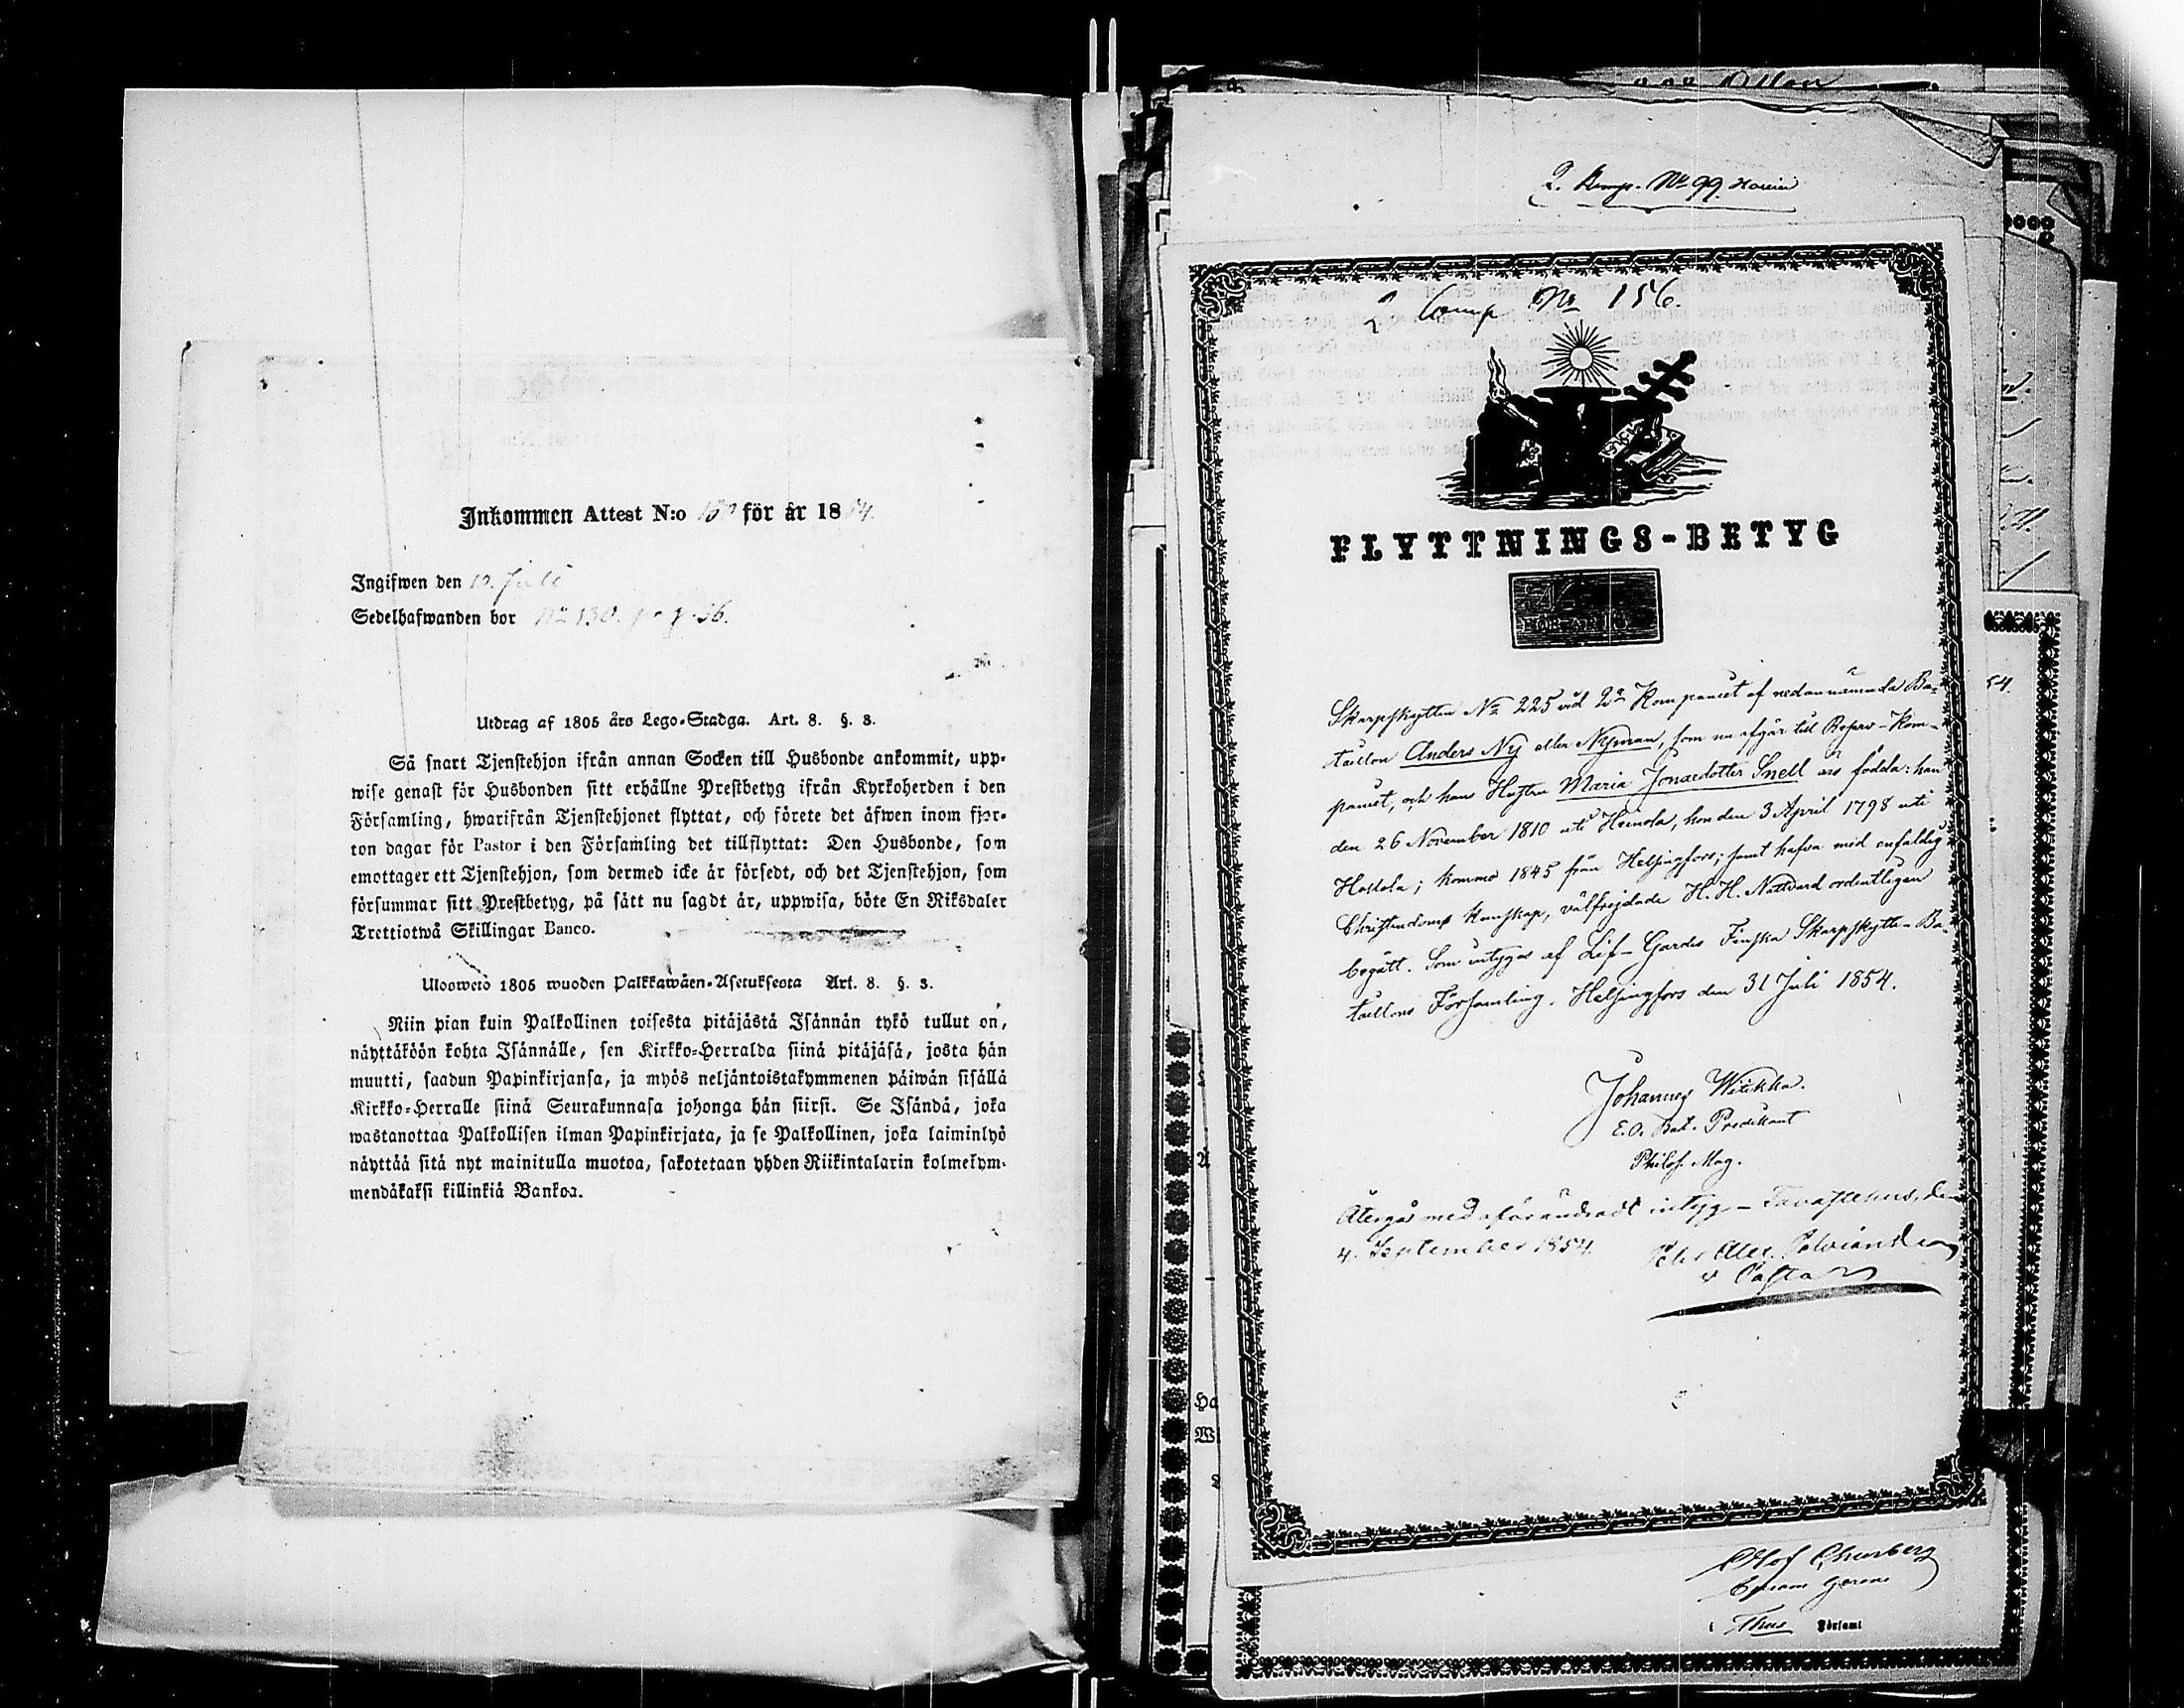 Inkommen Attest N:o för år 1854.
Ingifwen den 10. Juli
Sedelhafwanden bor N:o 130. pag. 36.
Utdrag af 1805 års Lego-Stadga. Art. 8. §. 3.
Så snart Tjenstehjon ifrån annan Socken till Husbonde ankommit, upp-
wise genast för Husbonden sitt erhållne Prestbetyg ifrån Kyrkoherden i den
Församling, hwarifrån Tjenstehjonet flyttat, och förete det äfwen inom fjor-
ton dagar för Pastor i den Församling det tillflyttat: Den Husbonde, som
emottager ett Tjenstehjon, som dermed icke är försedt, och det Tjenstehjon, som
försummar sitt Prestbetyg, på sätt nu sagdt är, uppwisa, böte En Riksdaler
Trettiotwå Skillingar Banco.
Uloswetö 1805 wuoden Palkkawäen-Asetuksesta Art. 8. §. 3.
Niin pian kuin Palkollinen toisesta pitäjästä Isännän tykö tullut on,
näyttäköön kohta Isännälle, sen Kirkko-Herralda siinä pitäjäsä, josta hän
muutti, saadun Papinkirjansa, ja myös neljäntoistakymmenen päiwän sisällä
Kirkko-Herralle siinä Seurakunnasa johonga hän siirsi. Se Isändä, joka
wastanottaa Palkollisen ilman Papinkirjata, ja se Palkollinen, joka laiminlyö
näyttää sitä nyt mainitulla muotoa, sakotetaan yhden Riikintalarin kolmekym-
mendäkaksi killinkiä Bankoa.
2. Komp. No 99.
2 Comp No 156.
FLYTTNINGS-BETYG
Skarpskytten No 225 vid 2a Kompaniet af nedannämnda Ba-
taillon Anders Ny eller Nyman, som nu afgår till Reserv-Kom-
paniet, och hans Hustru Maria Jonaedotter Snell äro födda: han
den 26 November 1810 uti Heinola, hon den 3 April 1798 uti
Hattola; kommo 1845 från Helsingfors; samt hafva med enfaldig
Christendoms kunskap, välfrejdade H. H. Nattvard ordentligen
begått. Som intygas af Lif-Gardes Finska Skarpskytte-Ba-
taillons Församling. Helsingfors den 31 Juli 1854.
Johannes Witikka.
E.O. Bat. Predikant
Philos. Mag.
Återgår med oförändradt intyg - Tavastehus, den
4. September 1854.
v Pastor
54.
Olof
i Församl